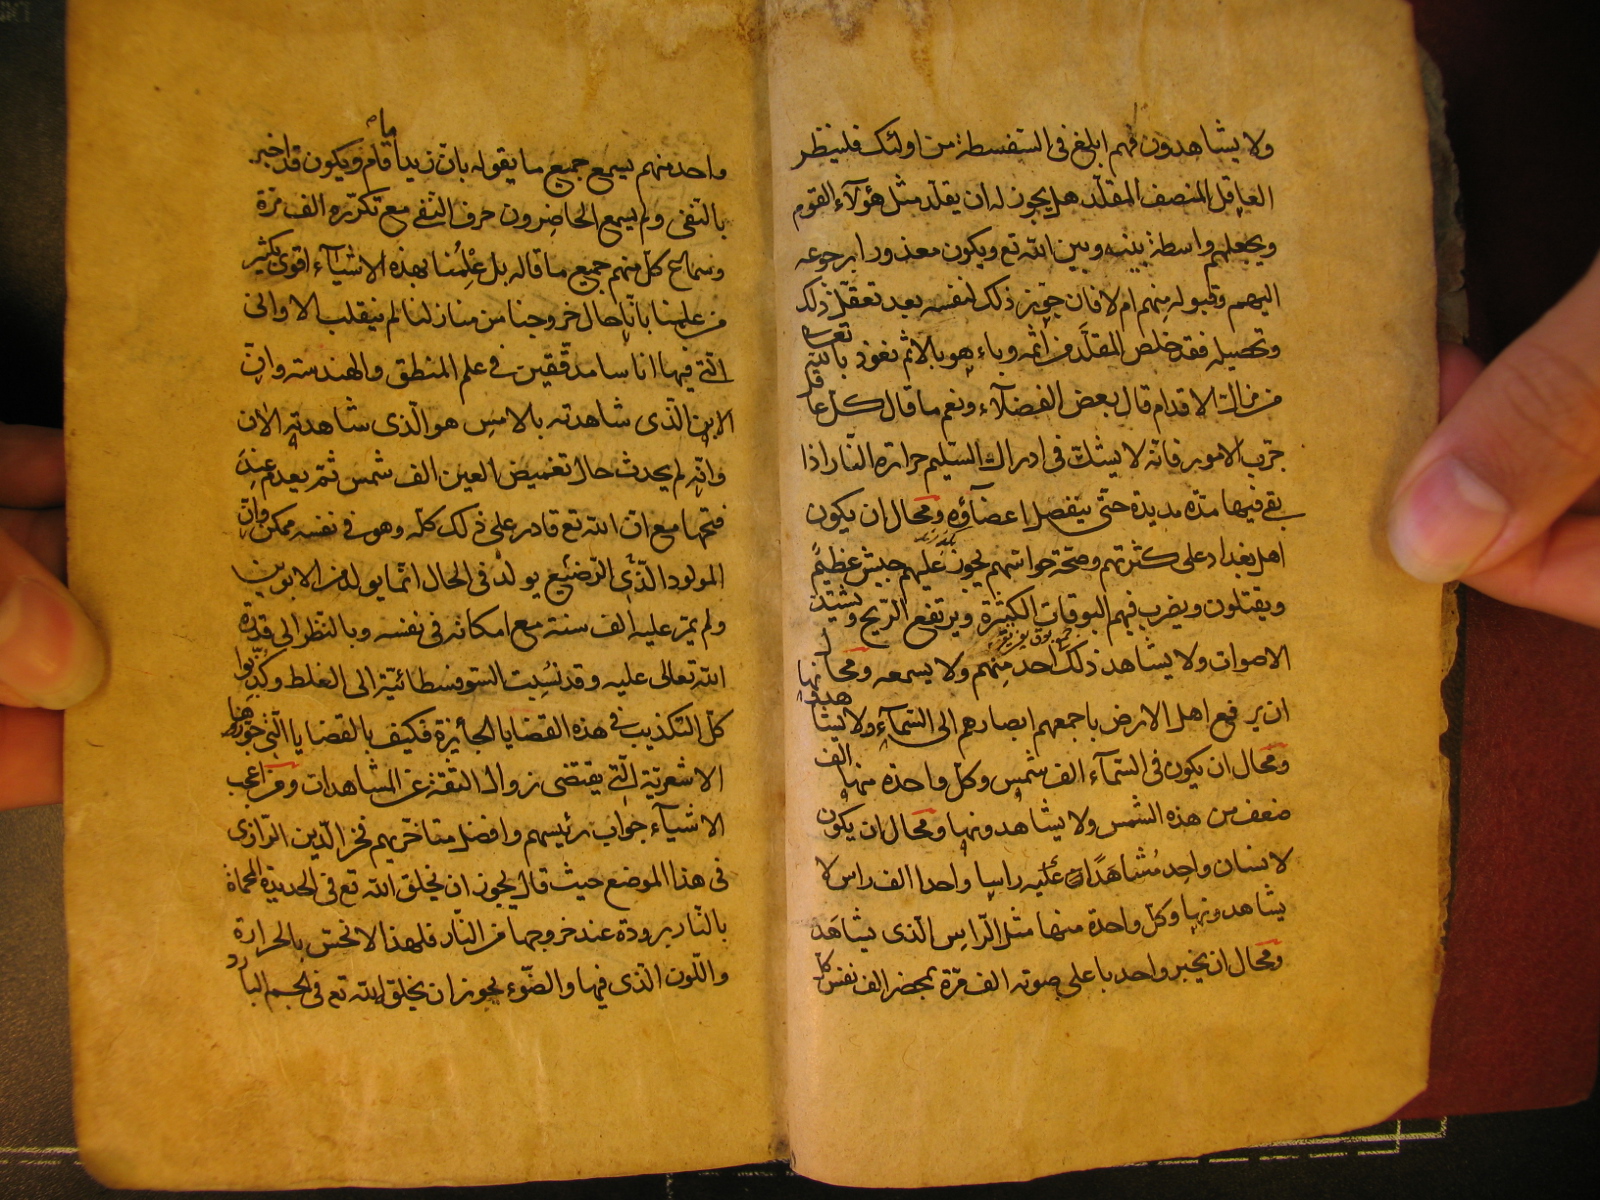 ولا يشاهدون فهم ابلغ فى السفسطة من اولئك فلينظر
العاقل المنصف المقلد هل يجوز له ان يقلد مثل هؤلاء القوم
ويجعلهم واسطة بينه وبين الله تع ويكون معذورا برجوعه
اليهم وقبوله منهم ام لا فان جوز ذلك لنفسه بعد تعقل ذلك
وتحصيله فقد خلص المقلد من اثمه وباء هو بالاثم نعوذ بالله تعـ
من مزال الاقدام قال بعض الفضلاء ونعم ما قال كل عاقل
جرب الامور فانه لا يشك فى ادراك السليم حرارة النار اذا
بقى فيها مدة مديدة حتى ينفصل اعضاؤه ومحال ان يكون
اهل بغداد على كثرتهم وصحة حواسهم يجوز عليهم جيش عظيم
ويقتلون ويضرب فيهم البوقات الكثيرة ويرتفع الريح ويشتد
الاصوات ولا يشاهد ذلك احد منهم ولا يسمعه ومحال
ان يرفع اهل الارض باجمعهم ابصارهم الى السماء ولا يشاهدونها
ومحال ان يكون فى السماء الف شمس وكل واحدة منها الف
ضعف من هذه الشمس ولا يشاهدونها ومحال ان يكون
لانسان واحد مشاهد ان عليه راسا واحدا الف راس لا
يشاهدونها وكل واحدة منها مثل الراس الذى يشاهد
ومحال ان يخبر واحد باعلى صوته الف مرة بمحضر الف نفس كل
واحد منهم يسمع جميع ما يقوله بان زيدا ما قام ويكون قد اخبر
بالنفى ولم يسمع الحاضرون حرف النفى مع تكرره الف مرة
وسماع كل منهم جميع ما قاله بل علمنا بهذه الاشياء اقوى بكثير
من علمنا بانا حال خروجنا من منازلنا لم ينقلب الاوانى
التى فيها اناسا مدققين فى علم المنطق والهندسة وان
الابن الذى شاهدته بالامس هو الذى شاهدته الان
وانه لم يحدث حال تغميض العين الف شمس ثم يعدم عند
فتحها مع ان الله تع قادر على ذلك كله وهو فى نفسه ممكن وان
المولود الذى الرضيع يولد فى الحال انما يولد من الابوين
ولم يمر عليه الف سنة مع امكانه فى نفسه وبالنظر الى قدرة
الله تعالى عليه وقد نسبت السوفسطائية الى الغلط وكذبوا
كل التكذيب فى هذه القضايا الجائزة فكيف بالقضايا التى جوزها
الاشعرية التى يقتضى زوال الثقة عن المشاهدات ومن اعجب
الاشياء جواب رئيسهم وافضل متاخريهم فخر الدين الرازى
فى هذا الموضع حيث قال يجوز ان يخلق الله تع فى الحديدة المحماة
بالنار برودة عند خروجها من النار فلهذا لا نحس بالحرارة
واللون الذى فيها والضوء يجوز ان يخلق الله تع فى الجسم البارد